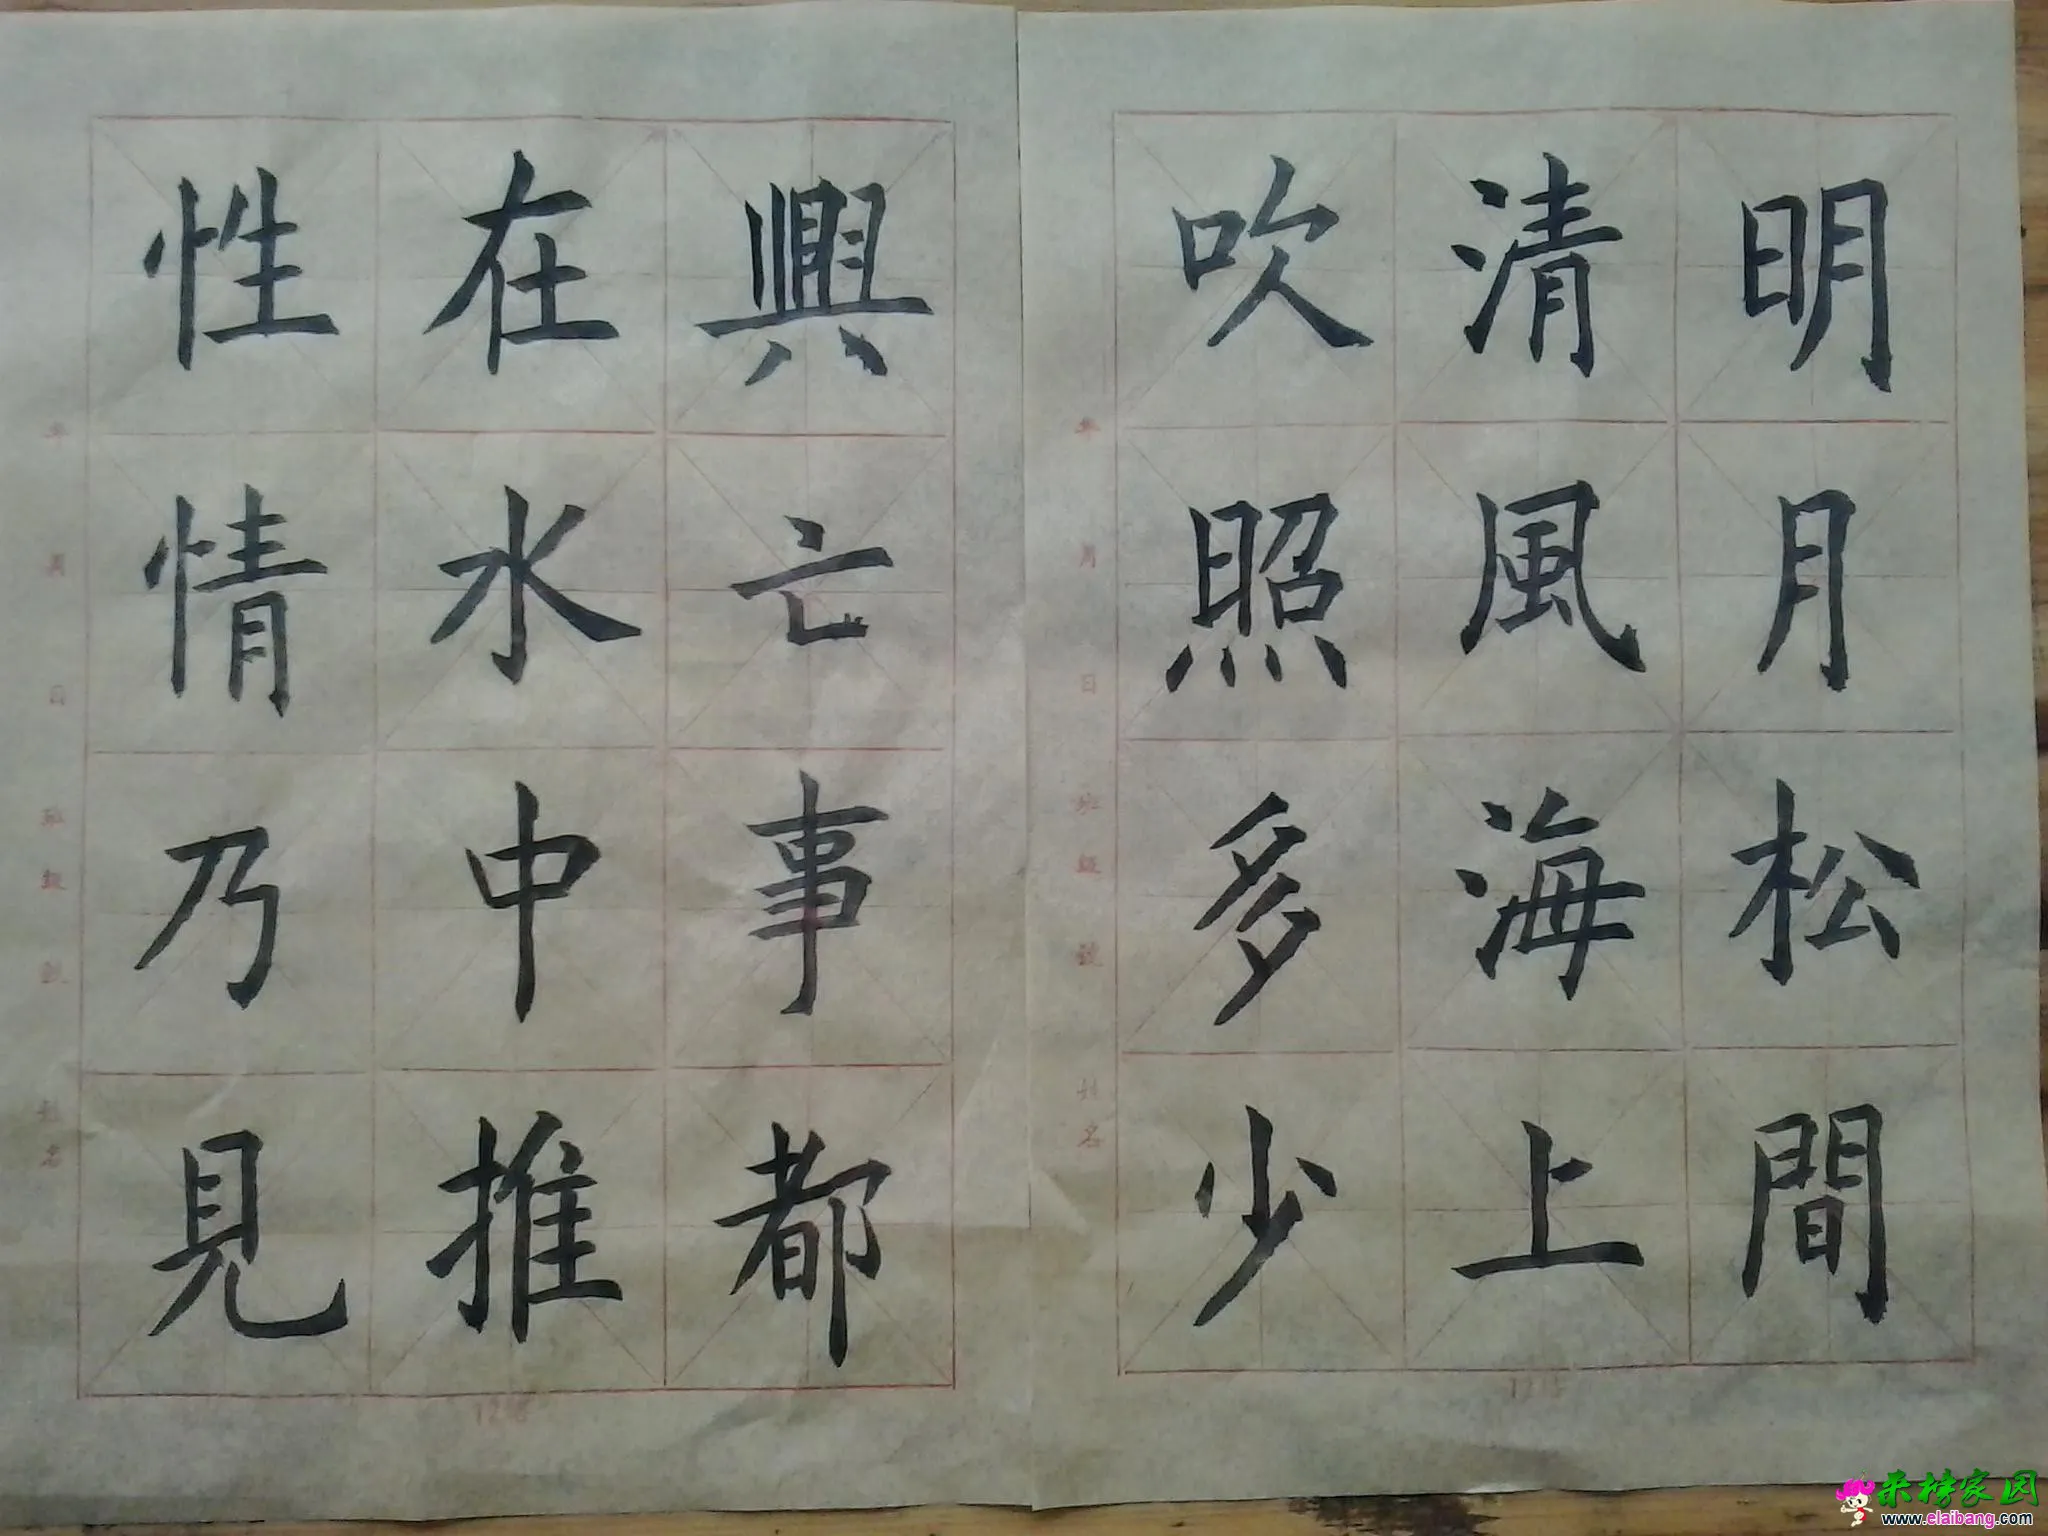 明月松間
清風海上
吹照多少
興亡事都
在水中推
性情乃見
年 月 日 班級 號 姓名
年 月 日 班級 號 姓名
采榜家园
www.elaibang.com